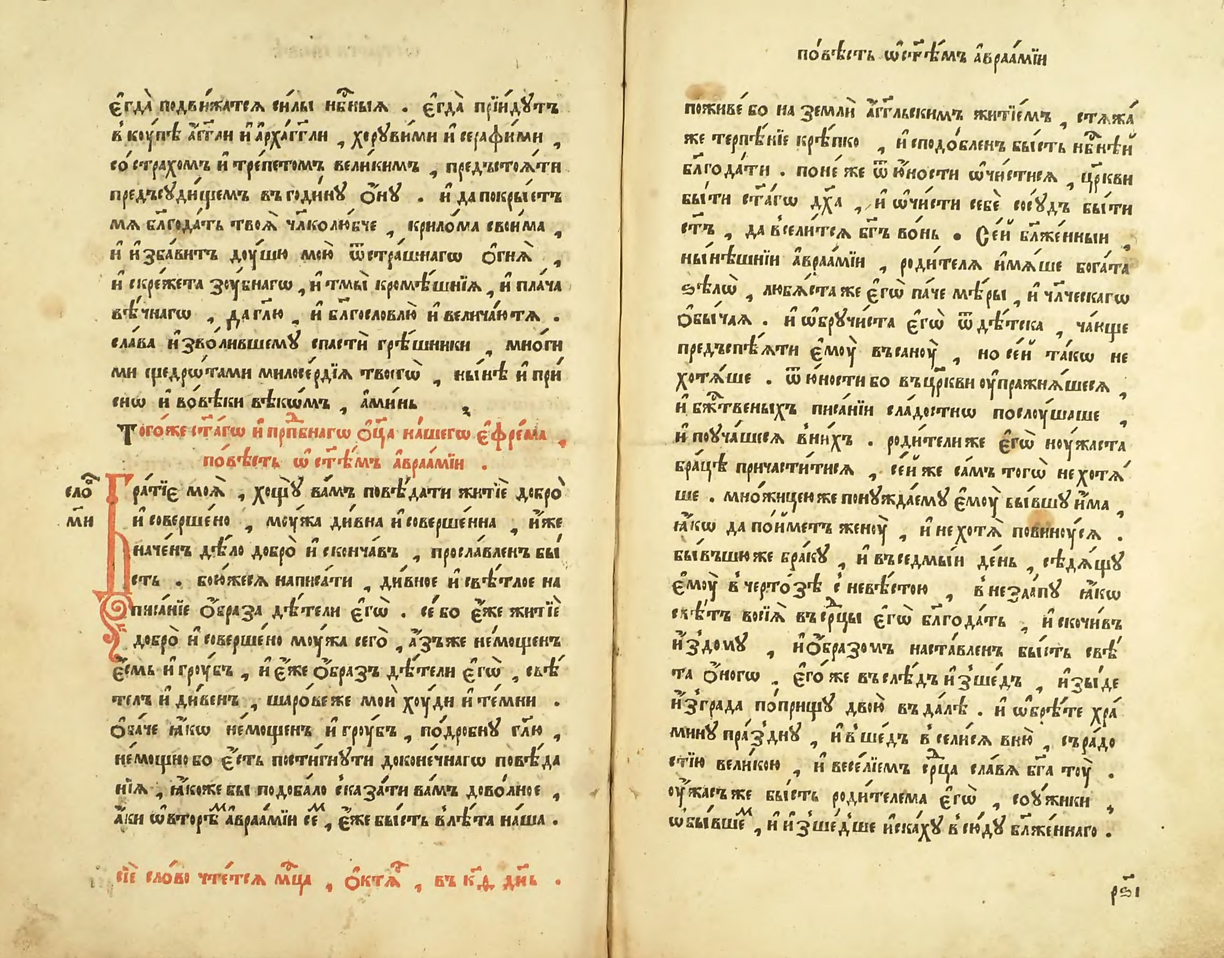 є҆гда̀ подви́жатсѧ си́лы нб҃ныѧ . є҆гда̀ прїи́дꙋтъ
в коу́пѣ а҆́гг҃ли и҆ а҆рха́гг҃ли , херꙋви́ми и҆ серафи́ми ,
со стра́хомъ и҆ тре́петомъ вели́кимъ , предъстоѧ́ти
предъсꙋди́щемъ въ годи́нꙋ ѻ҆́нꙋ . и҆ да покры́етъ
мѧ блг҃ода́ть твоѧ̀ чл҃колю́бче , крило́ма свои́ма ,
и҆ и҆зба́витъ дꙋ́шю мою̀ ѿстра́шнагѡ ѻ҆гнѧ̀ ,
и҆ скре́жета зоу́бнагѡ , и҆ тмы̀ кромѣ́шнїѧ , и҆ пла́ча
вѣ́чнагѡ , да гл҃ю , и҆ блг҃ословлю̀ и҆ велича́ютѧ .
сла́ва и҆зво́лившемꙋ спастѝ грѣ́шники , мно́ги
ми щедрѡ́тами милосе́рдїѧ твоегѡ̀ , ны́нѣ и҆ при́
снѡ и҆ вовѣ́ки вѣкѡ́мъ , а҆ми́нь .
Того́же ст҃а́гѡ и҆ прпⷣбнагѡ ѻ҆ц҃а̀ на́шегѡ є҆фре́ма ,
по́вѣсть ѡ҆ ст҃ѣ́мъ а҆враа́мїи .
сло́ Бра́тїє моѧ̀ , хощꙋ̀ ва́мъ повѣ́дати житїѐ добро̀
н҃и и҆ соверше́но , мꙋ́жа ди́вна и҆ соверше́нна , и҆́же
наче́нъ дѣ́ло добро̀ и҆ сконча́въ , просла́вленъ бы́
сть . бою́жесѧ написа́ти , ди́вное и҆ свѣ́тлое на
писа́нїе ѻ҆́браза дѣ́тели є҆гѡ̀ . се́ бо є҆́же житїѐ
добро̀ и҆ соверше́но мꙋ́жа сего̀ , а҆́зъже не́мощенъ
є҆́смь и҆ грꙋ́бъ , и҆ є҆́же ѻ҆́бразъ дѣ́тели є҆гѡ̀ , свѣ́
телъ и҆ ди́венъ , ша́рове же моѝ хꙋ́ди и҆ те́мни .
ѻ҆ба́че ꙗ҆́кѡ не́мощенъ и҆ грꙋ́бъ , подро́бнꙋ гл҃ю ,
не́мощно бо є҆́сть пости́гнꙋти доконе́чнагѡ повѣ́да
нїѧ , ꙗ҆́коже бы подоба́ло сказа́ти ва́мъ дово́лное ,
а҆́ки ѡ҆ вторѣ́мъ а҆враа́мїи се́мъ , є҆́же бы́сть в лѣ́та на́ша .
сїѐ сло́во чте́тсѧ мцⷭ҇а , ѻ҆ктѧ́ , въ к҃д дн҃ь .
по́вѣсть ѡ҆ ст҃ѣ́мъ а҆враа́мїи
поживе́ бо на землѝ а҆́гг҃льскимъ житїе́мъ , стѧжа́
же терпѣ́нїе крѣ́пко , и҆ сподо́бленъ бы́сть нб҃нѣй
блг҃ода́ти . поне́ же ѿ ю҆́ности ѡ҆чи́стисѧ , цр҃кви
бы́ти ст҃а́гѡ дх҃а , и҆ ѡ҆чи́сти себѐ сосꙋ́дъ бы́ти
ст҃ъ , да вселитсѧ бг҃ъ во́нь . Се́й блж҃енныи ,
ны́нѣшнїи а҆враа́мїи , роди́телѧ и҆мѧ́ше бога́та
ѕѣлѡ̀ , любѧ́ста же є҆гѡ̀ па́че мѣ́ры , и҆ чл҃ческагѡ
ѻ҆бы́чаѧ . и҆ ѡ҆брꙋчи́ста є҆гѡ̀ ѿ дѣ́тска , ча́юще
предъспѣѧ́ти є҆мꙋ̀ въ санꙋ̀ , но се́й та́кѡ не
хотѧ́ше . ѿ ю҆́ности бо въ цр҃кви оу҆пражнѧ́шесѧ ,
и҆ бж҃твеныхъ писа́нїи сла́достнѡ послꙋ́шаше
и҆ поуча́шесѧ в ни́хъ . роди́телиже є҆гѡ̀ нꙋ́жаста
бра́цѣ причасти́тисѧ , се́й же са́мъ тогѡ̀ не хотѧ́
ше . мно́жицею же понꙋжда́емꙋ є҆мꙋ̀ бы́вшꙋ и҆́ма ,
ꙗ҆́кѡ да по́йметъ женꙋ̀ , и҆ не хотѧ̀ повинꙋ́сѧ .
бы́въшю же бра́кꙋ , и҆ въ седмы́и де́нь , сѣдѧ́щꙋ
є҆мꙋ̀ в черто́зѣ с невѣ́стою , внеза́пꙋ ꙗ҆́кѡ
свѣ́тъ восїѧ̀ въ срⷣцы є҆гѡ̀ блг҃ода́ть , и҆ скочи́въ
и҆з до́мꙋ , и ѻ҆́бразомъ наста́вленъ бы́сть свѣ́
та ѻ҆́ногѡ , є҆го́ же въ слѣ́дъ и҆зше́дъ , и҆зы́де
и҆з гра́да по́прищꙋ двою̀ въ да́лѣ . и҆ ѡ҆брѣ́те хра́
минꙋ пра́зднꙋ , и҆ вше́дъ всели́сѧ в ню̀ , съ ра́до
стїю вели́кою , и҆ весе́лїемъ срⷣца сла́вѧ бг҃а тꙋ̀ .
оу҆́жасъ же бы́сть роди́телема є҆гѡ̀ , со оу҆́жики ,
ѡ҆ бы́вшемъ , и҆ и҆зше́дше и҆ска́хꙋ всю́дꙋ блж҃еннаго .
рѕ҃і